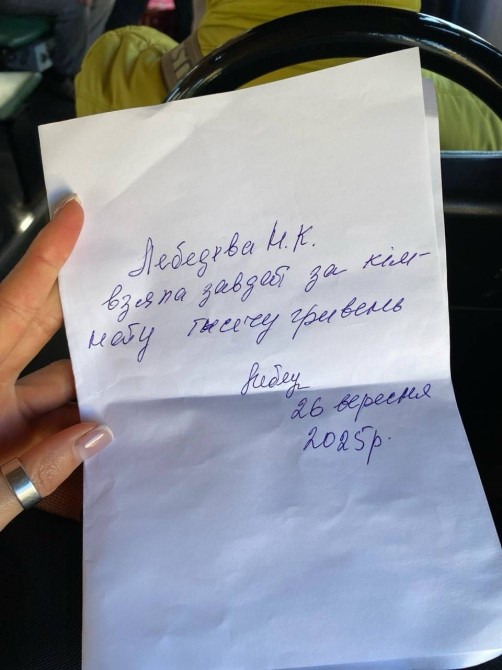 Лебедєва Н.К.
взяла завдат за кім-
нату тисячу гривень
26 вересня
2025р.